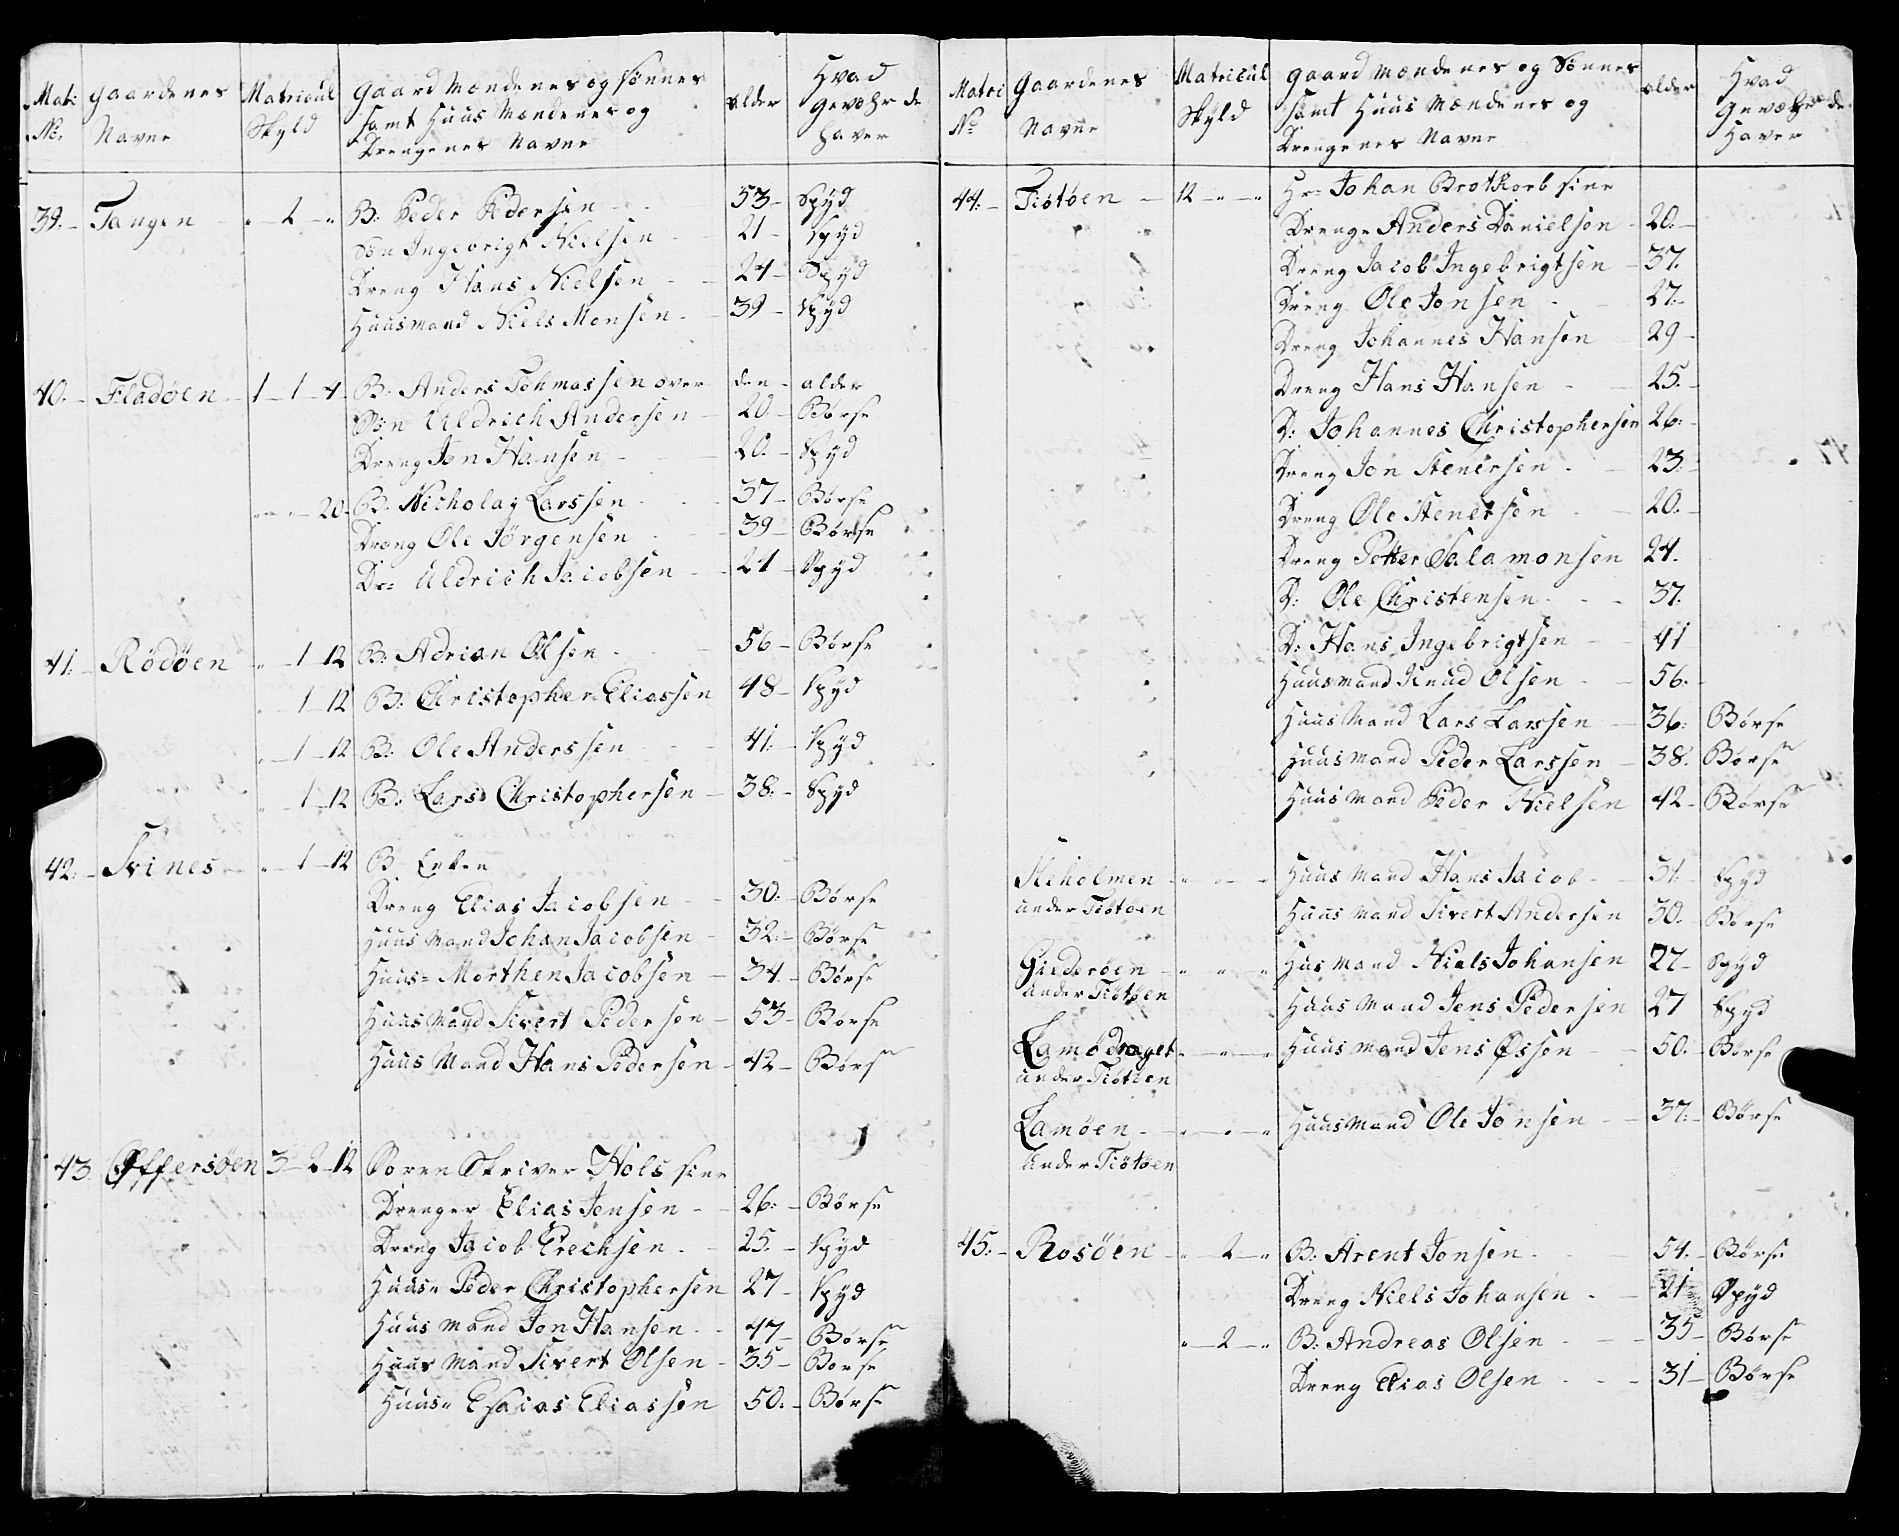 Mat: No. Gaardenes Navne Matricul Skyld Gaard Mændenes og Sønnes samt Huus Mændenes og Drengenes Navne alder Hvad Gevæhr de haver
39. Tangen 2 B: Peder Pedersen 53 Spyd
Søn Ingeorigt Nielsen 21 Spyd
Dreng Hans Nielsen 24 Spyd
Huusmand Niels Monsen 39 Spyd
40. Fladøen 1 1 4 B: Anders Tohmassen over den alder
Søn Uldrich Andersen 20 Børse
Dreng Jon Hansen 20 Spyd
20 B: Nicholay Larssen 37 Børse
Dreng Ole Jörgensen 39 Børse
Dr= Uldrich Jacobsen 21 Spyd
41. Rödöen 1 12 B: Adrian Olsen 56 Børse
1 12 B: Christopher Eliassen 48 Spyd
1 12 B: Ole Anderssen 41 Spyd
1 12 B: Lars Christophersen 38 Spyd
42. Svines 1 12 B Enken
Dreng Elias Jacobsen 30 Børse
Huus Mand Johan Jacobsen 32 Børse
Huus= Morthen Jacobsen 34 Børse
Huus Mand Sivert Pedersen 53 Børse
Huus Mand Hans Pedersen 42 Børse
43 Offersøen 3 2 12 Soren Skriver Hols sine
Drenger Elias Jensen 26 Børse
Dreng Jacob Erechsen 25 Spyd
Huus= Peder Christophersen 27 Spyd
Huus Mand Jon Hansen 47 Børse
Huus Mand Sivert Olsen 35 Børse
Huus= Esaias Eliassen 50 Børse
Matri No Gaardenes Navne Matricul Skyld Gaard Mændenes og Sönnes samt Huus Mændenes og Drengenes Navne alder Hvad Gevæhr de Haver
44. Tiötöen 12 Hr= Johan Brotkorb sine
Drenge Anders Danielsen 20
Dreng Jacob Ingebrigtsen 37
Dreng Ole Jonsen 27
Dreng Johannes Hansen 29
Dreng Hans Hansen 25
D: Johannes Christophersen 26
Dreng Jon Stenersen 23
Dreng Ole Stenersen 20
Dreng Petter Salamonsen 24
D: Ole Christensen 37
D: Hans Ingebrigtsen 41
Huusmand Knud Olsen 56
Huus Mand Lars Larssen 36 Børse
Huus mand Peder Larssen 38 Børse
Huus mand Peder Nielsen 42 Børse
Steholmen Huus Mand Hans Jacob 31 Spyd
under Tiötöen Huus Mand Sivert Andersen 30 Børse
Giederöen Hus mand Niels Johansen 27 Spyd
under Tiötöen Huus Mand Jens Pedersen 27 Spyd
Lamödraget Huus mand Jens Ossen 50 Børse
under Tiötöen
Lamöen Huus Mand Ole Jonsen 37 Børse
under Tiötöen
45. Rosöen 2 B: Arent Jonsen 54 Børse
Dreng Niels Johansen 21 Spyd
2 B: Andreas Olsen 35 Børse
Dreng Elias Olsen 31 Børse